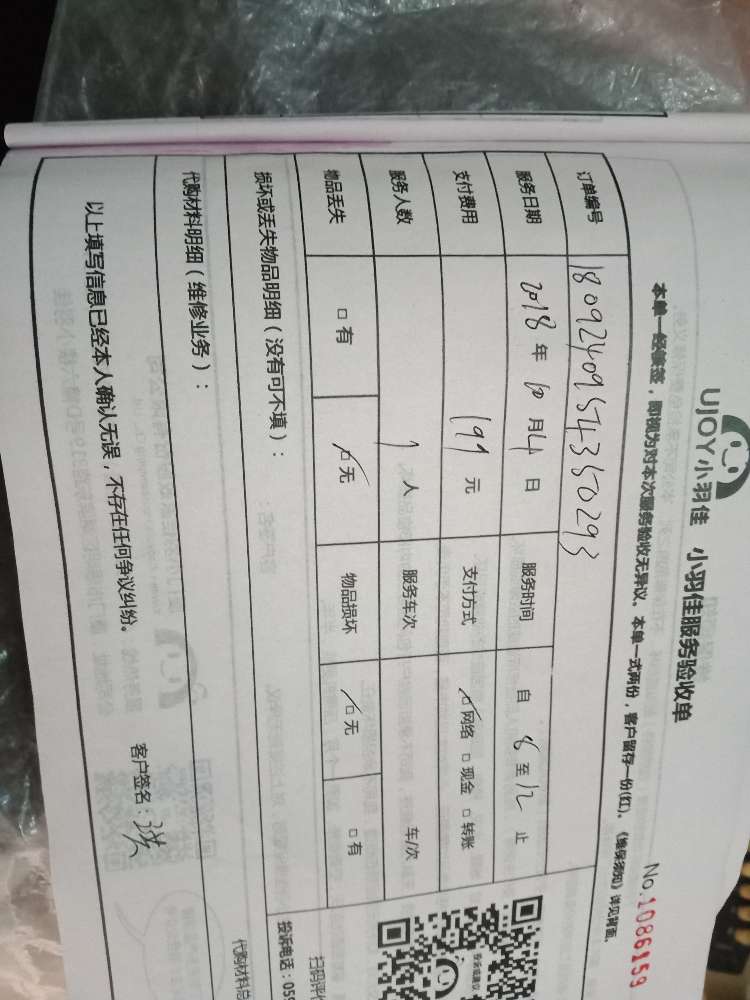 UJOY小羽佳 小羽佳服务验收单
No.1086159
本单一经承签，即视为对本次服务验收无异议。本单一式两份，客户留存一份(红)。《维保须知》详见背面。
订单编号 1809240954350293
服务日期 2018年10月4日 服务时间 自8至12止
支付费用 199元 支付方式 □网络 □现金 □转账
服务人数 1人 服务车次 车/次
物品丢失 □有 □无 物品损坏 □无 □有
损坏或丢失物品明细（没有可不填）：
扫码评价
投诉电话：059
代购材料明细（维修业务）：
代购材料总
以上填写信息已经本人确认无误，不存在任何争议纠纷。
客户签名：洪